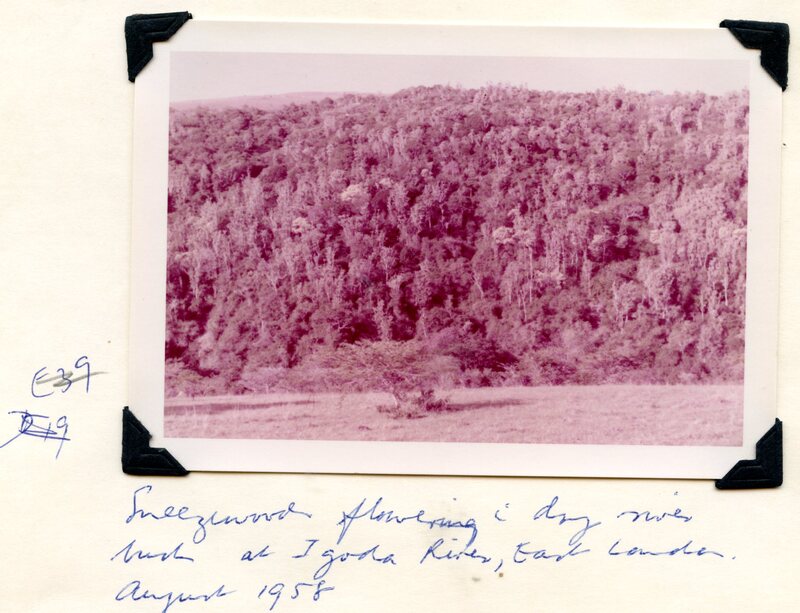 E39
Sneezewoods flowering i dry river
bush at Igoda River, East London.
August 1958